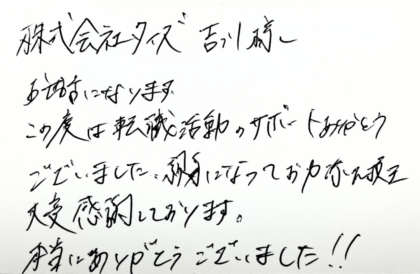 株式会社タイズ 吉川様
お世話になります
この度は転職活動のサポートありがとう
ございました。親身になってお力添え頂き
大変感謝しております。
本当にありがとうございました!!